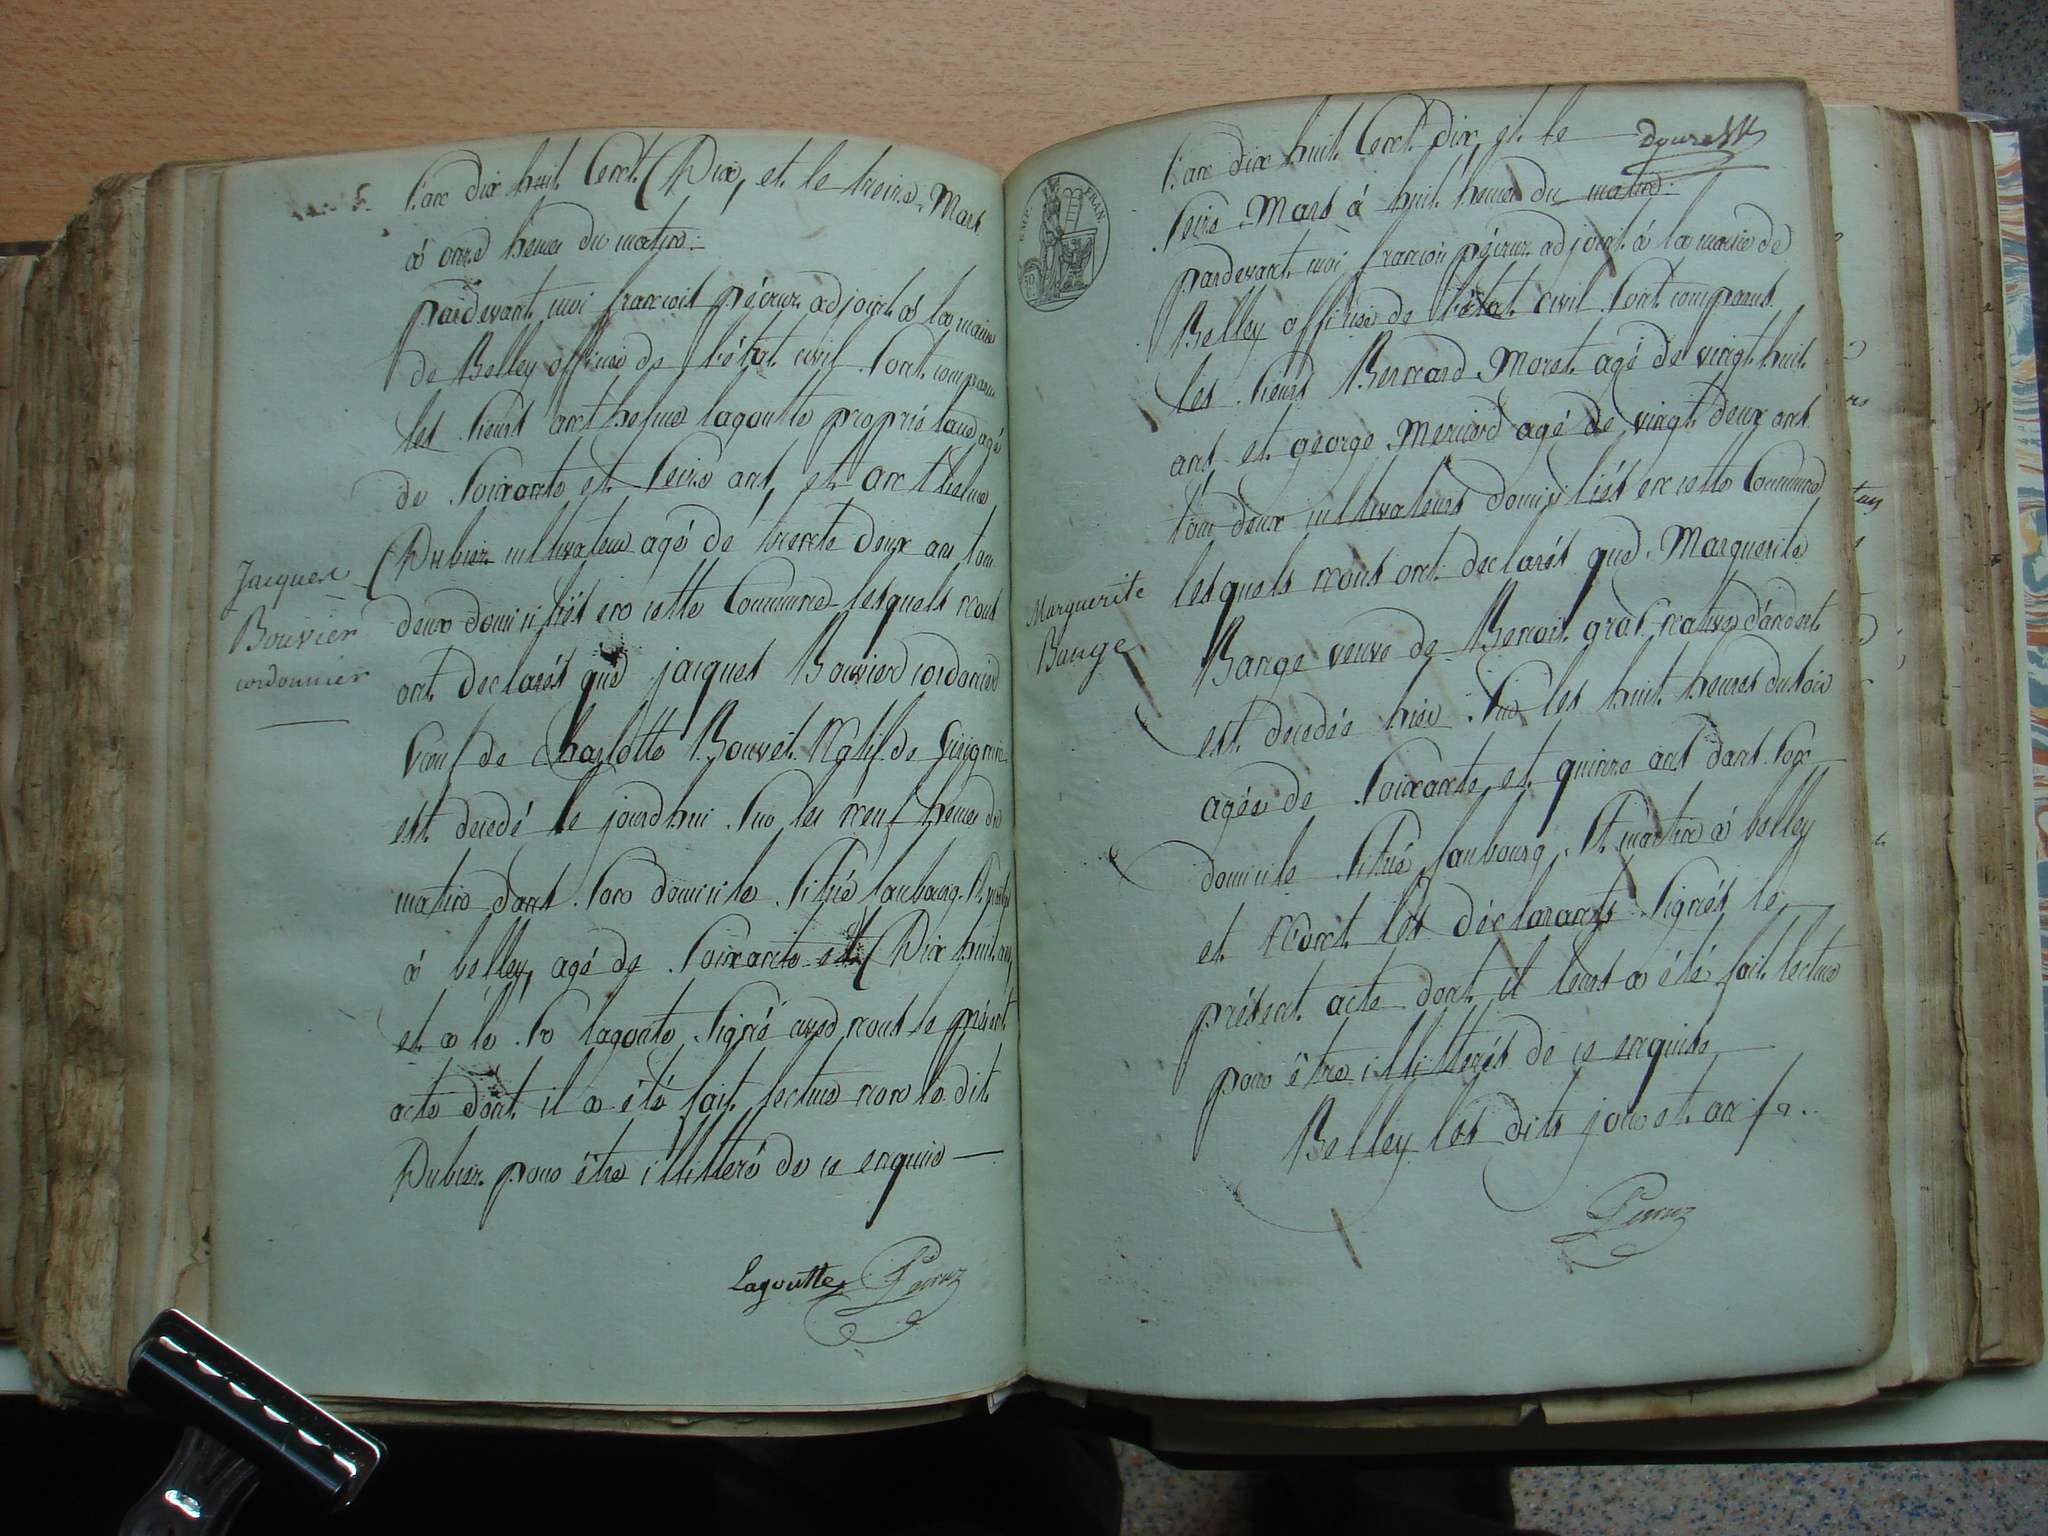 L'an dix huit Cent Dix, et le treize Mars
à onze heures du matin.
pardevant moi françois pécruz adjoint à la mairie
de Belley officier de l'état civil sont comparus
les sieurs anthelme lagoutte propriétaire agé
de soixante et seize ans, et anthelme
Dubiez cultivateur agé de trente deux ans tous
deux domiciliés en cette Commune lesquels nous
ont declarés que jacques Bouvier cordonier
veuf de Charlotte Bouvet Natif de
est decedé ce jourd'hui sur les neuf heures du
matin dans son domicile situé faubourg
à belley, agé de soixante et Dix huit ans,
et a le sr lagoutte signé avec nous le présent
acte dont il a été fait lecture non le dit
Dubiez pour être illitteré de ce enquis
Lagoutte Pecruz
Jacques
Bouvier
cordonnier
EMP. FRAN.
L'an dix huit Cent Dix, et le
seize Mars à huit heures du matin.
pardevant moi françois pécruz adjoint à la mairie de
Belley officier de l'état civil sont comparus
les sieurs Bernard Moret agé de vingt huit
ans et george Meriard agé de vingt deux ans
tous deux cultivateurs domiciliés en cette Commune
lesquels nous ont declarés que Marguerite
Bange veuve de Benoit gras native d'andert
est decedée hier sur les huit heures du soir
agée de soixante et quinze ans dans son
domicile situé faubourg St martin à belley
et N'ont les déclarants signés le
présent acte dont il leurs a été fait lecture
pour être illitterés de ce enquise
Belley les dits jour et an
Pecruz
Marguerite
Bange